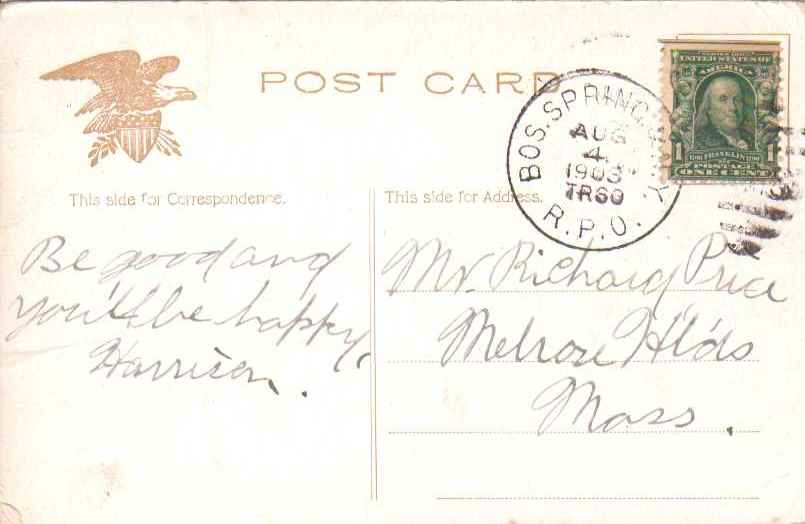 POST CARD
UNITED STATES OF
AMERICA
1 FRANKLIN 1
POSTAGE
ONE CENT
BOS. SPRING. & N.Y.
AUG
4
1908
TR 60
R.P.O.
This side for Correspondence.
This side for Address.
Be good and
you'll be happy,
Harrison.
Mr. Richard Price
Melrose H'l'ds
Mass.